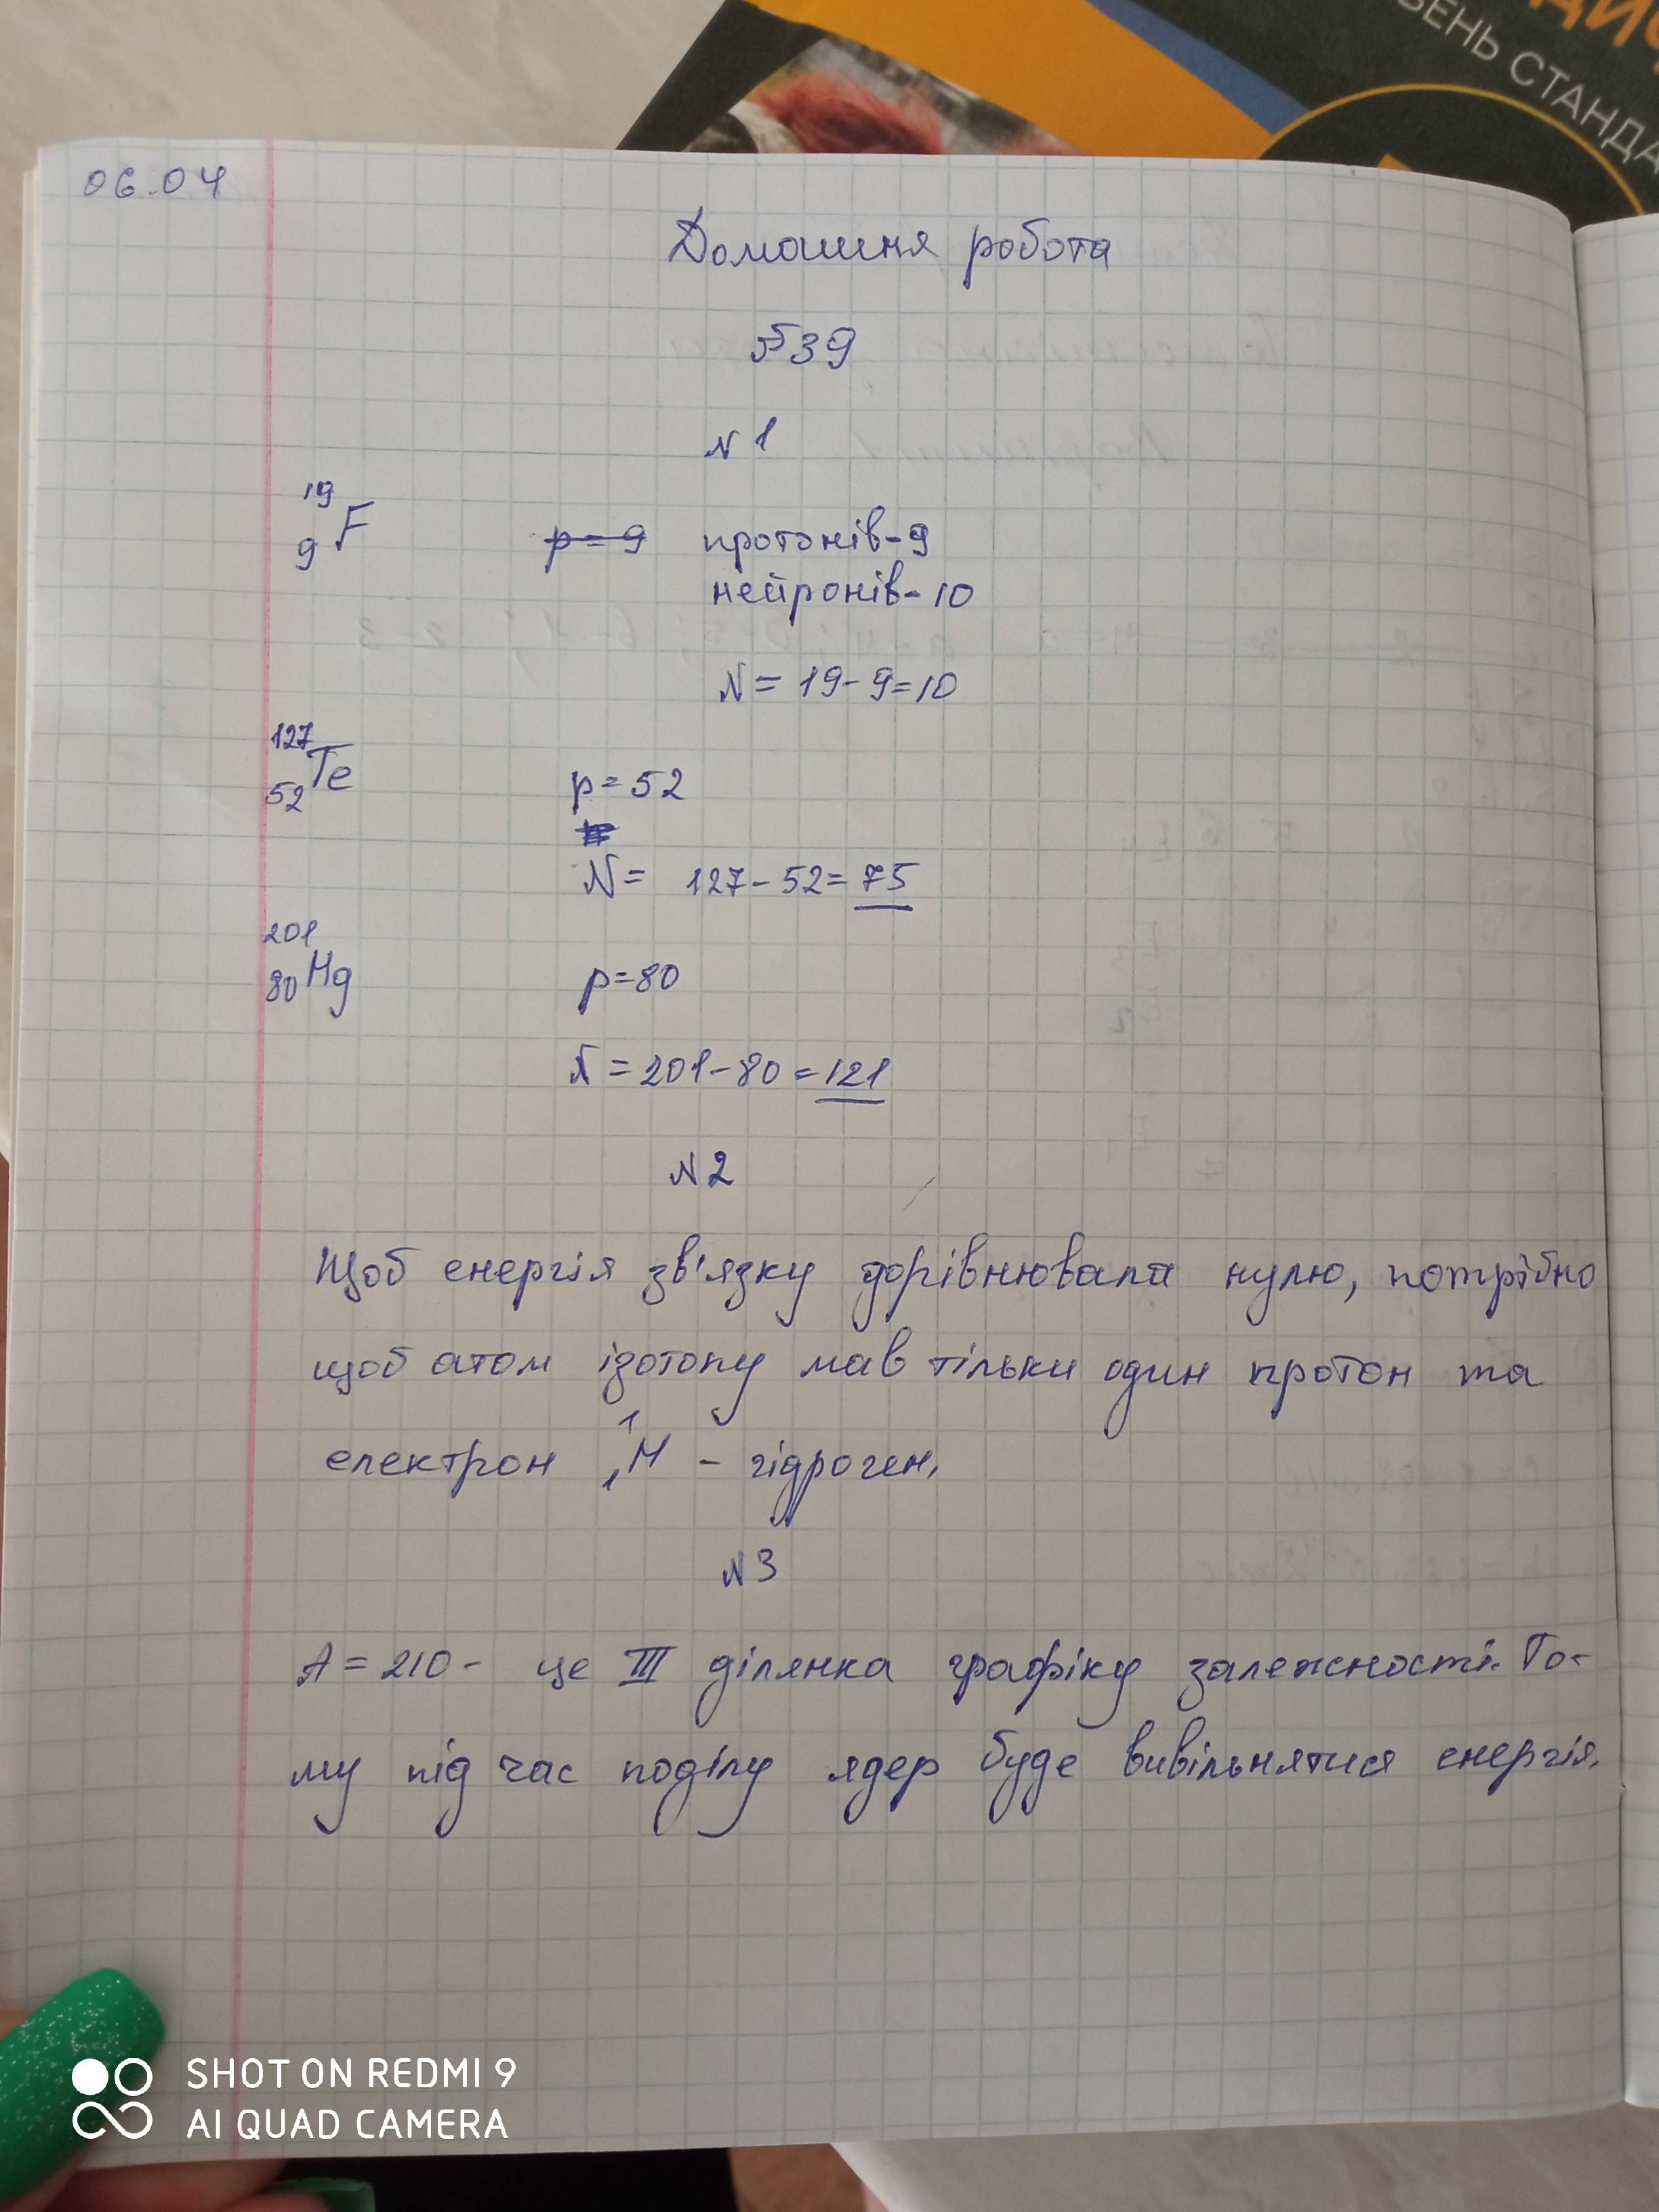 ДИ
ВЕНЬ СТАНДА
06.04
Домашня робота
§39
N1
19
9 F р=9 протонів-9
нейронів-10
N= 19-9=10
127
52 Te p=52
N= 127-52=75
201
80 Hg p=80
N=201-80=121
N2
Щоб енергія зв'язку дорівнювала нулю, потрібно
щоб атом ізотопу мав тільки один протон та
електрон ¹₁H - гідроген.
N3
A=210- це III ділянка графіку залежності. То-
му під час поділу ядер буде вивільнятися енергія.
SHOT ON REDMI 9
AI QUAD CAMERA